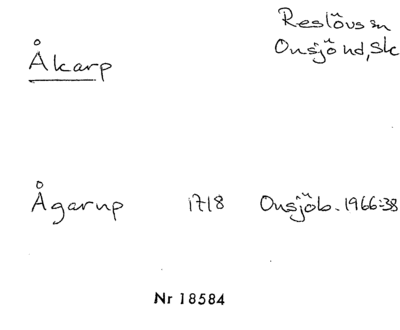 Reslövs sn
Åkarp Onsjö hd, Sk
Ågarup 1718 Onsjöb. 1966:38
Nr 18584